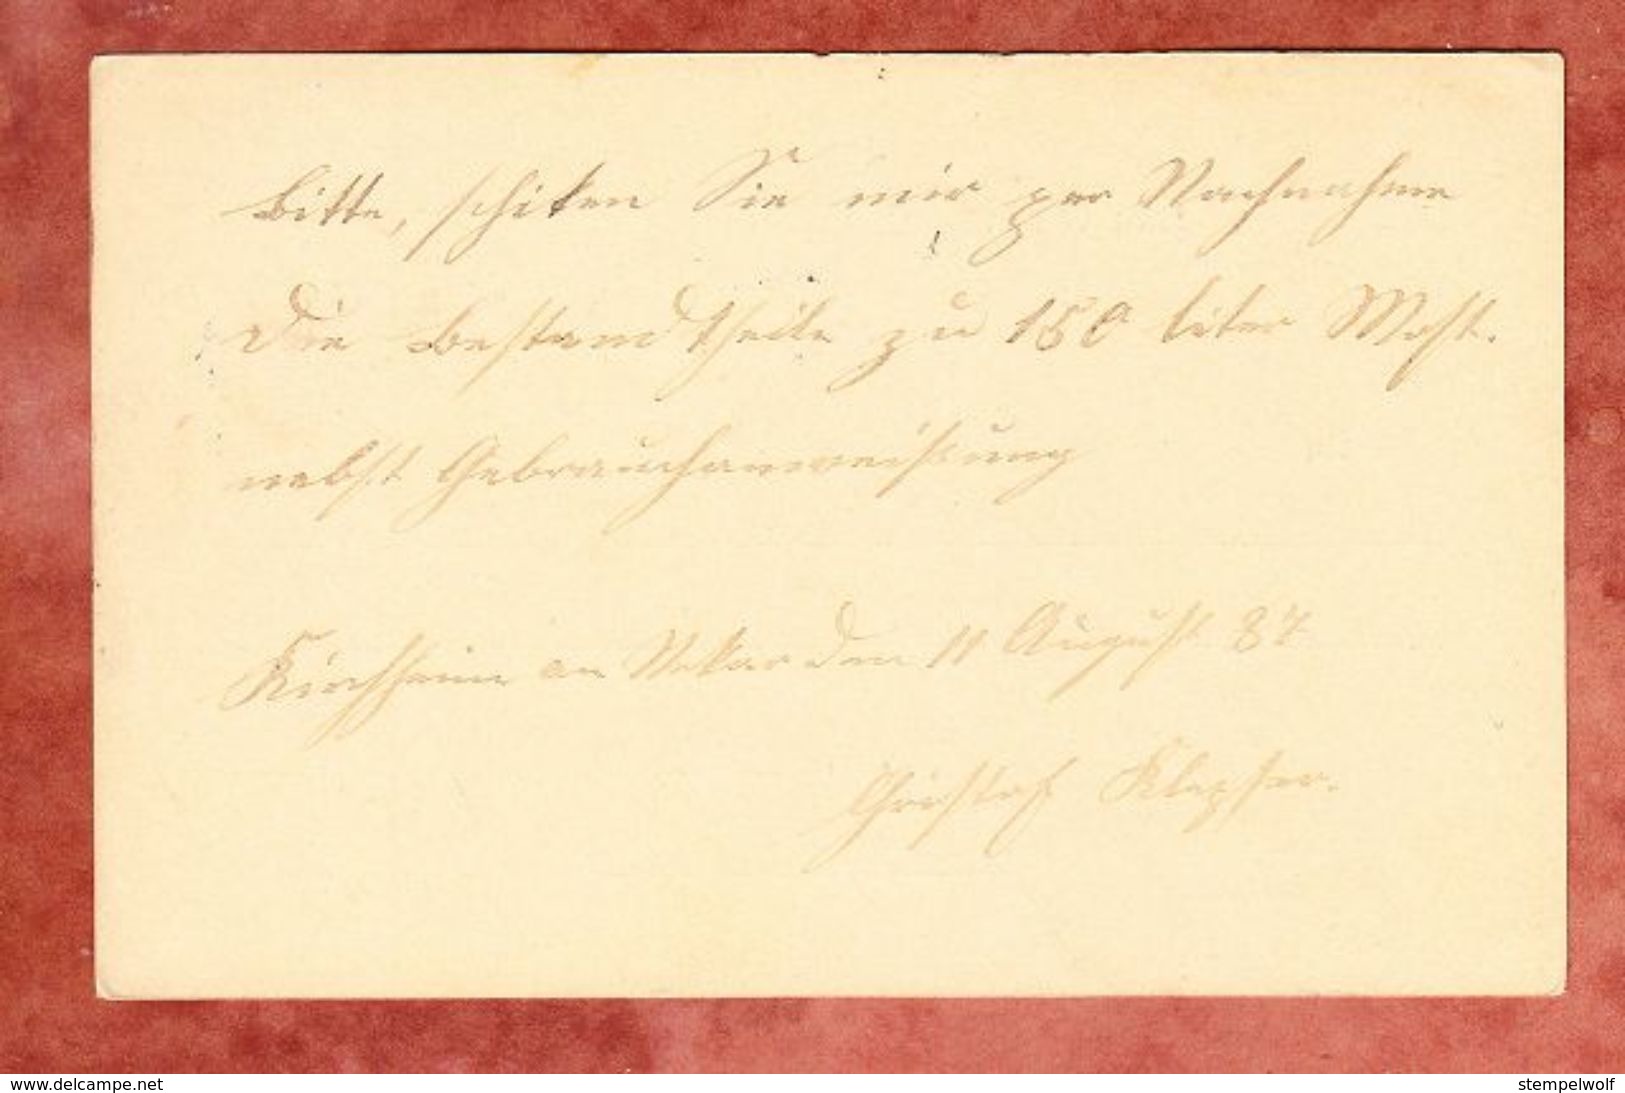 Bitte, schiken Sie mir per Nachnahme
Die Bestandtheile zu 150 liter Most.
nebst Gebrauchanweißung
Kirchheim an Nekar den 11 August 87
Christof Klepfer.
www.delcampe.net
stempelwolf